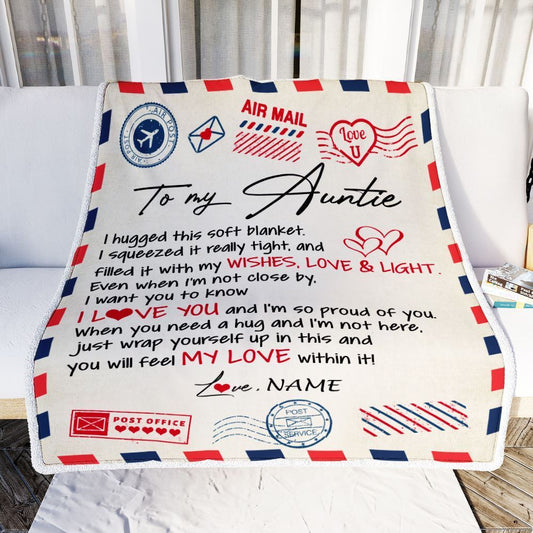 AIR POST
AIR POST
AIR MAIL
Love
U
To my Auntie
I hugged this soft blanket.
I squeezed it really tight, and
filled it with my WISHES, LOVE & LIGHT.
Even when I'm not close by,
I want you to know
I L❤VE YOU and I'm so proud of you.
When you need a hug and I'm not here,
just wrap yourself up in this and
you will feel MY LOVE within it!
Love, NAME
POST OFFICE
POST
SERVICE